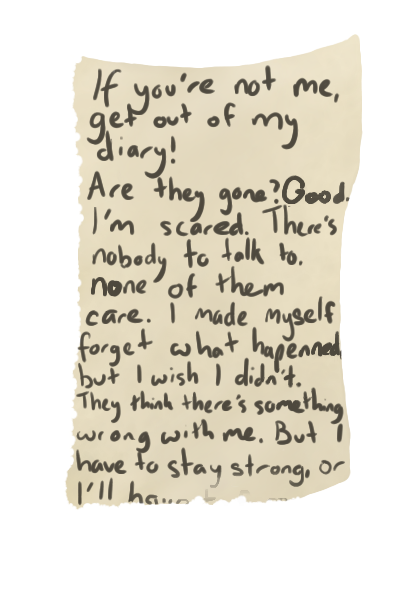 If you're not me,
get out of my
diary!
Are they gone? Good.
I'm scared. There's
nobody to talk to.
none of them
care. I made myself
forget what hapenned
but I wish I didn't.
They think there's something
wrong with me. But I
have to stay strong, or
I'll have